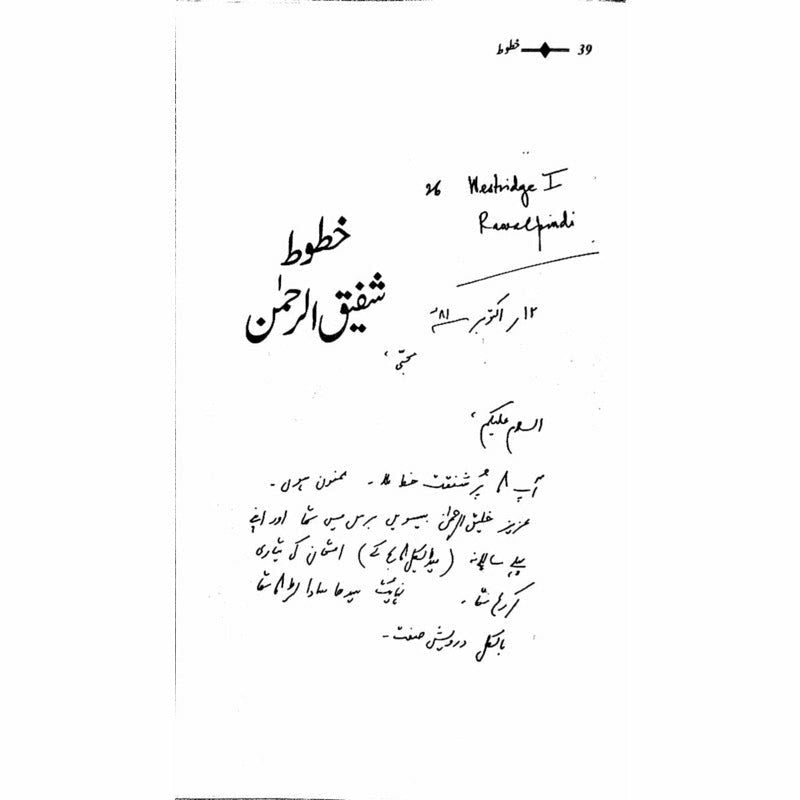 39 خطوط
26 Westridge I
Rawalpindi
خطوط
شفیق الرحمٰن
۱۲ اکتوبر ۸۱ء
محبّی،
السلام علیکم،
آپ کا پُر شفقت خط ملا۔ ممنون ہوں۔
عزیز خلیق الرحمٰن بیسویں برس میں تھا اور اپنے
پہلے سالانہ (میڈیکل کالج کے) امتحان کی تیاری
کر رہا تھا۔ نہایت سیدھا سادا لڑکا تھا
بالکل درویش صفت۔